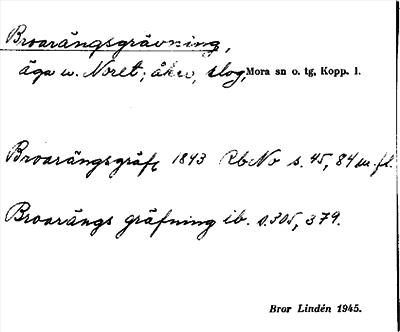 Broarängsgrävning,
äga w. Noret; åker, slog, Mora sn o. tg, Kopp. l.
Broarängsgräfn 1843 RbNo s. 45, 84 m. fl.
Broarängs gräfning ib. s. 305, 379.
Bror Lindén 1945.